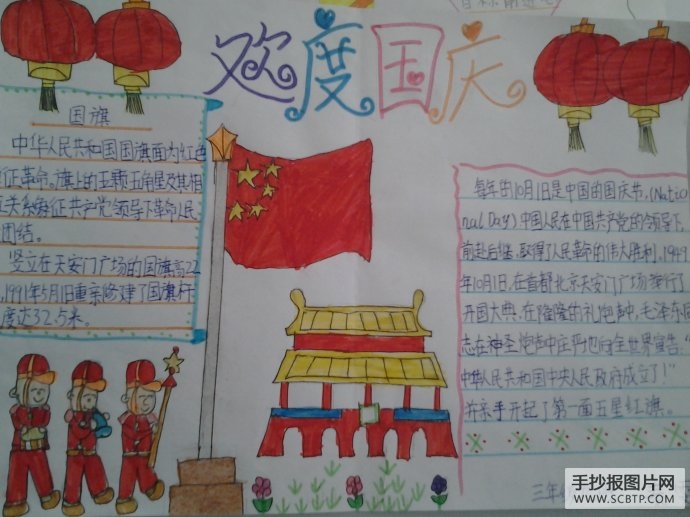 欢度国庆
国旗
中华人民共和国国旗面为红色
征革命。旗上的五颗五角星及其相
互关系象征共产党领导下革命人民
团结。
竖立在天安门广场的国旗高22
1991年5月1日重新修建了国旗杆
度达32.5米。
每年的10月1日是中国的国庆节。(Natio
nal Day)中国人民在中国共产党的领导下,
前赴后继,取得了人民革命的伟大胜利。1949
年10月1日,在首都北京天安门广场举行了
开国大典,在隆隆的礼炮声中,毛泽东同
志在神圣炮声中庄严地向全世界宣告,“
中华人民共和国中央人民政府成立了!”
并亲手升起了第一面五星红旗。
三年
手抄报图片网
WWW.SCBTP.COM